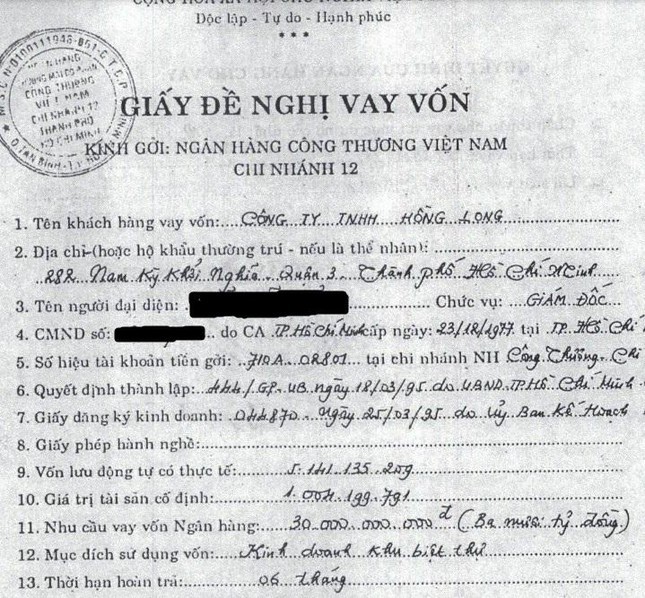 CỘNG HÒA XÃ HỘI CHỦ NGHĨA VIỆT
Độc lập - Tự do - Hạnh phúc
***
M.S.C.N:0100111948-051-C.T.C.P
NGÂN HÀNG
CÔNG THƯƠNG
VIỆT NAM
CHI NHÁNH 12
THÀNH PHỐ
HỒ CHÍ MINH
GIẤY ĐỀ NGHỊ VAY VỐN
KÍNH GỞI: NGÂN HÀNG CÔNG THƯƠNG VIỆT NAM
CHI NHÁNH 12
1. Tên khách hàng vay vốn: CÔNG TY TNHH HỒNG LONG
2. Địa chỉ (hoặc hộ khẩu thường trú - nếu là thể nhân):
282 Nam Kỳ Khởi Nghĩa Quận 3 Thành phố Hồ Chí Minh
3. Tên người đại diện: Chức vụ: GIÁM ĐỐC
4. CMND số: do CA TP.Hồ Chí Minh cấp ngày: 23/12/1977 tại TP. Hồ Chí
5. Số hiệu tài khoản tiền gởi: 710A.02801 tại chi nhánh NH Công Thương Chi
6. Quyết định thành lập: 444/GP.UB ngày 18/03/95 do UBND TP.Hồ Chí Minh
7. Giấy đăng ký kinh doanh: 044870 Ngày 25/03/95 do Ủy Ban Kế Hoạch
8. Giấy phép hành nghề:
9. Vốn lưu động tự có thực tế: 5.141.135.209
10. Giá trị tài sản cố định: 1.004.199.791
11. Nhu cầu vay vốn Ngân hàng: 30.000.000.000đ (Ba mươi tỷ đồng)
12. Mục đích sử dụng vốn: Kinh doanh khu biệt thự
13. Thời hạn hoàn trả: 06 tháng